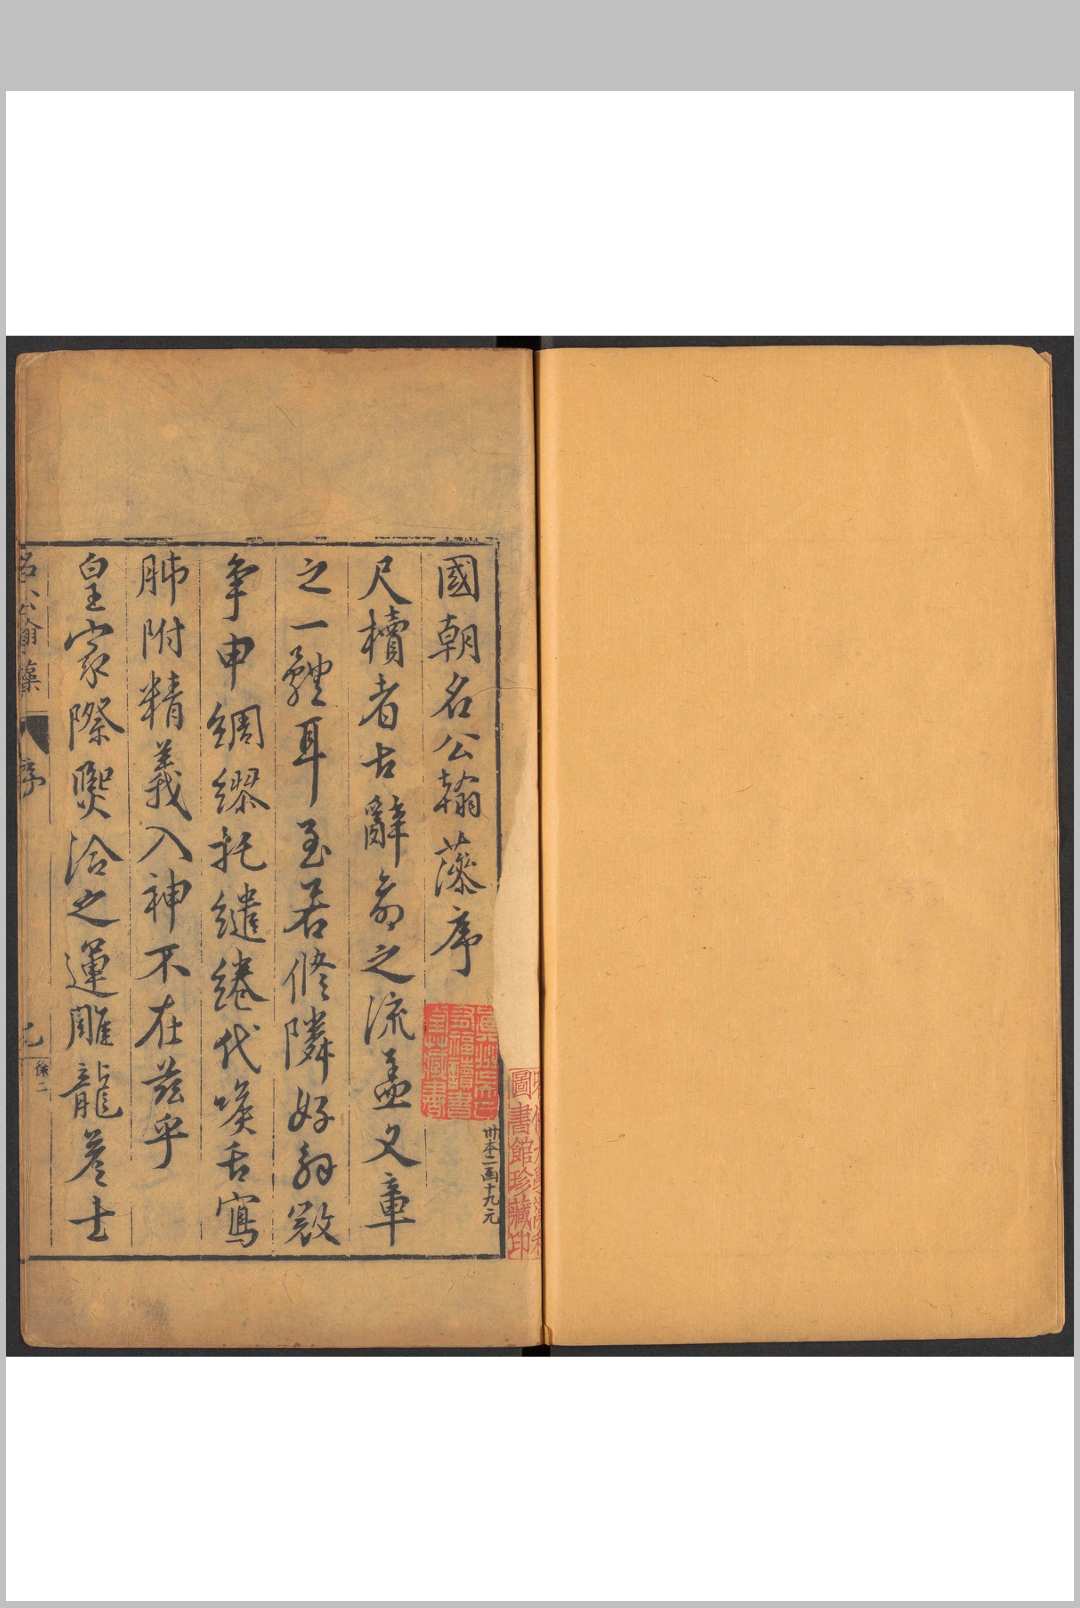 國朝名公翰藻序
尺牘者古辭命之流盖文章
之一體耳至若修隣好解
爭申綢繆托繾綣代喉舌寫
肺附精義入神不在茲乎
皇家際熈洽之運雕龍
士
名公翰藻
序
卅本二函十九元
圖書館珍藏印